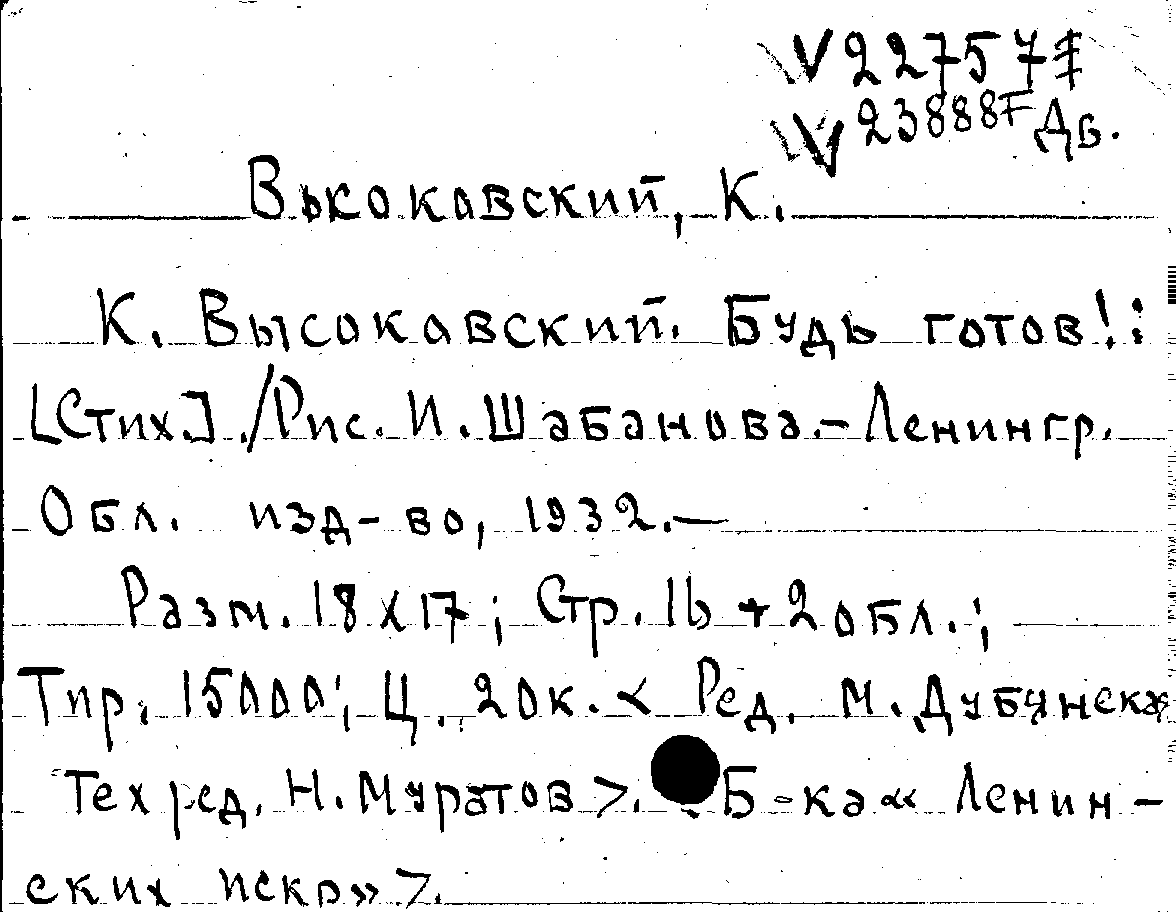 V 227577
V 23888F Дв.
Выкокавский, К.
К. Высокавский. Будь готов!:
[Стих]./Рис. И. Шабанова.-Ленингр.
Обл. изд-во, 1932.—
Разм. 18 X 17; Стр. 16 + 2 обл.;
Тир. 15000; Ц. 20к. < Ред. М. Дубянская
Техред. Н. Муратов >. Б-ка « Ленин-
ских искр» >.